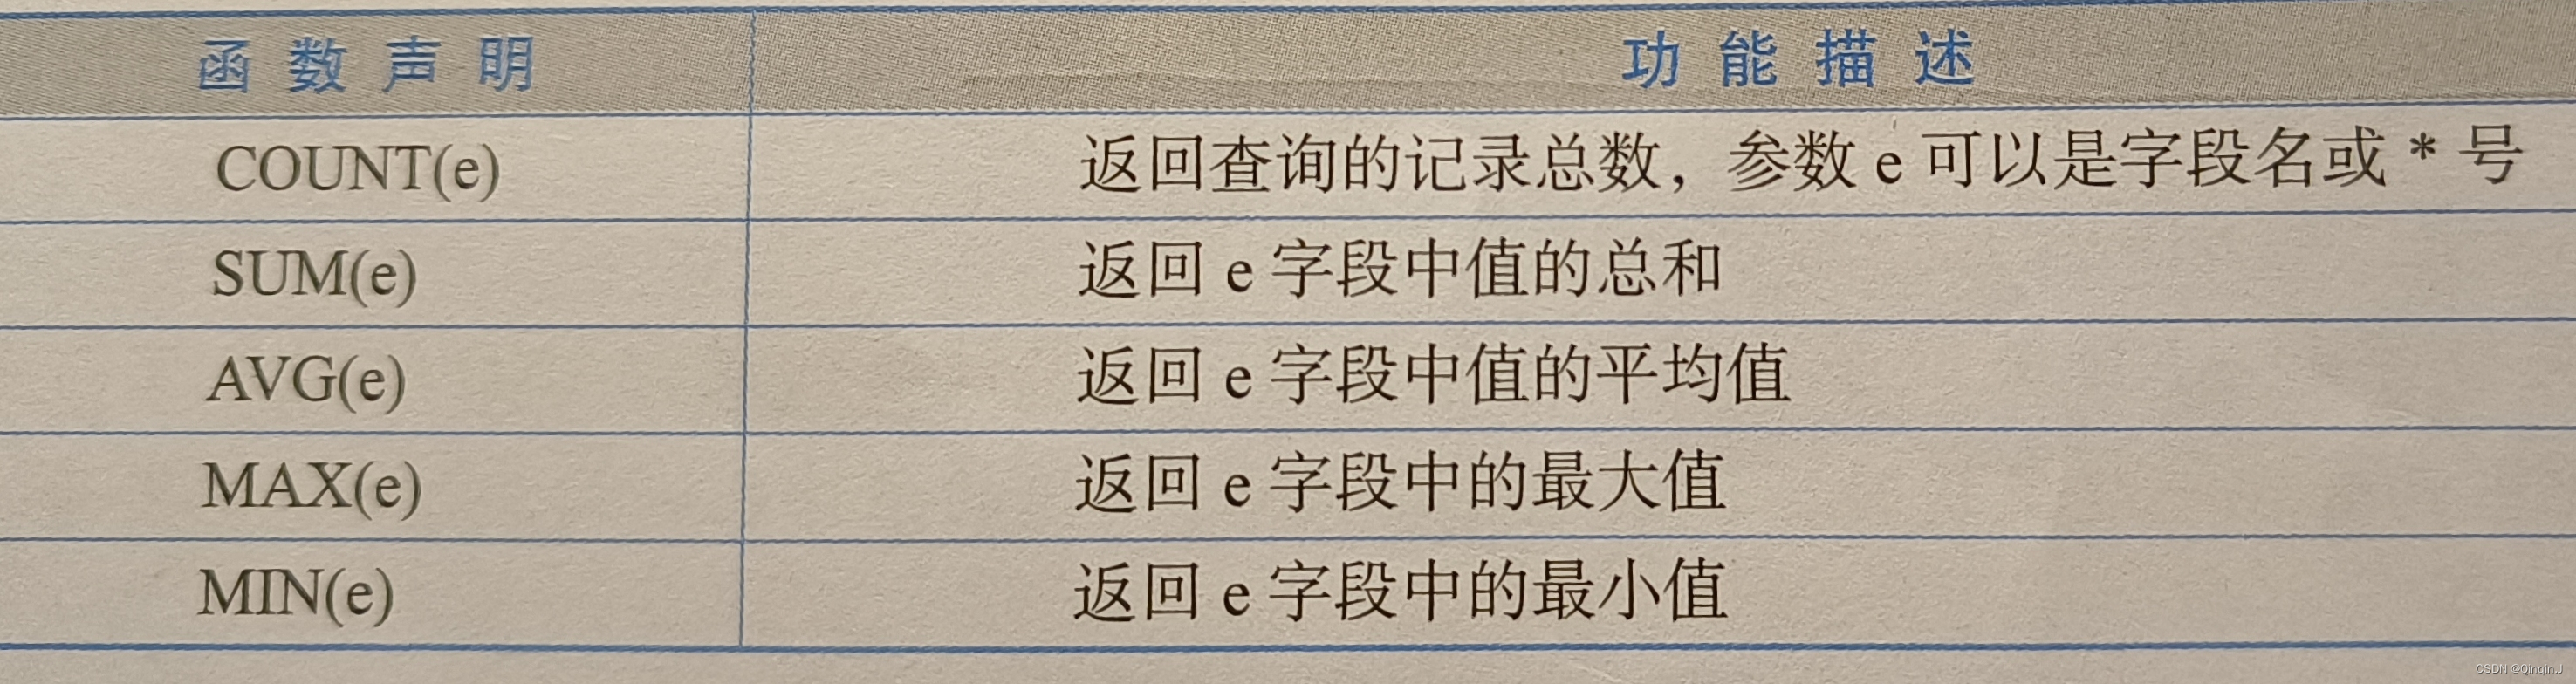 函数声明 功能描述
COUNT(e) 返回查询的记录总数，参数 e 可以是字段名或 * 号
SUM(e) 返回 e 字段中值的总和
AVG(e) 返回 e 字段中值的平均值
MAX(e) 返回 e 字段中的最大值
MIN(e) 返回 e 字段中的最小值
CSDN @Qinqin.J